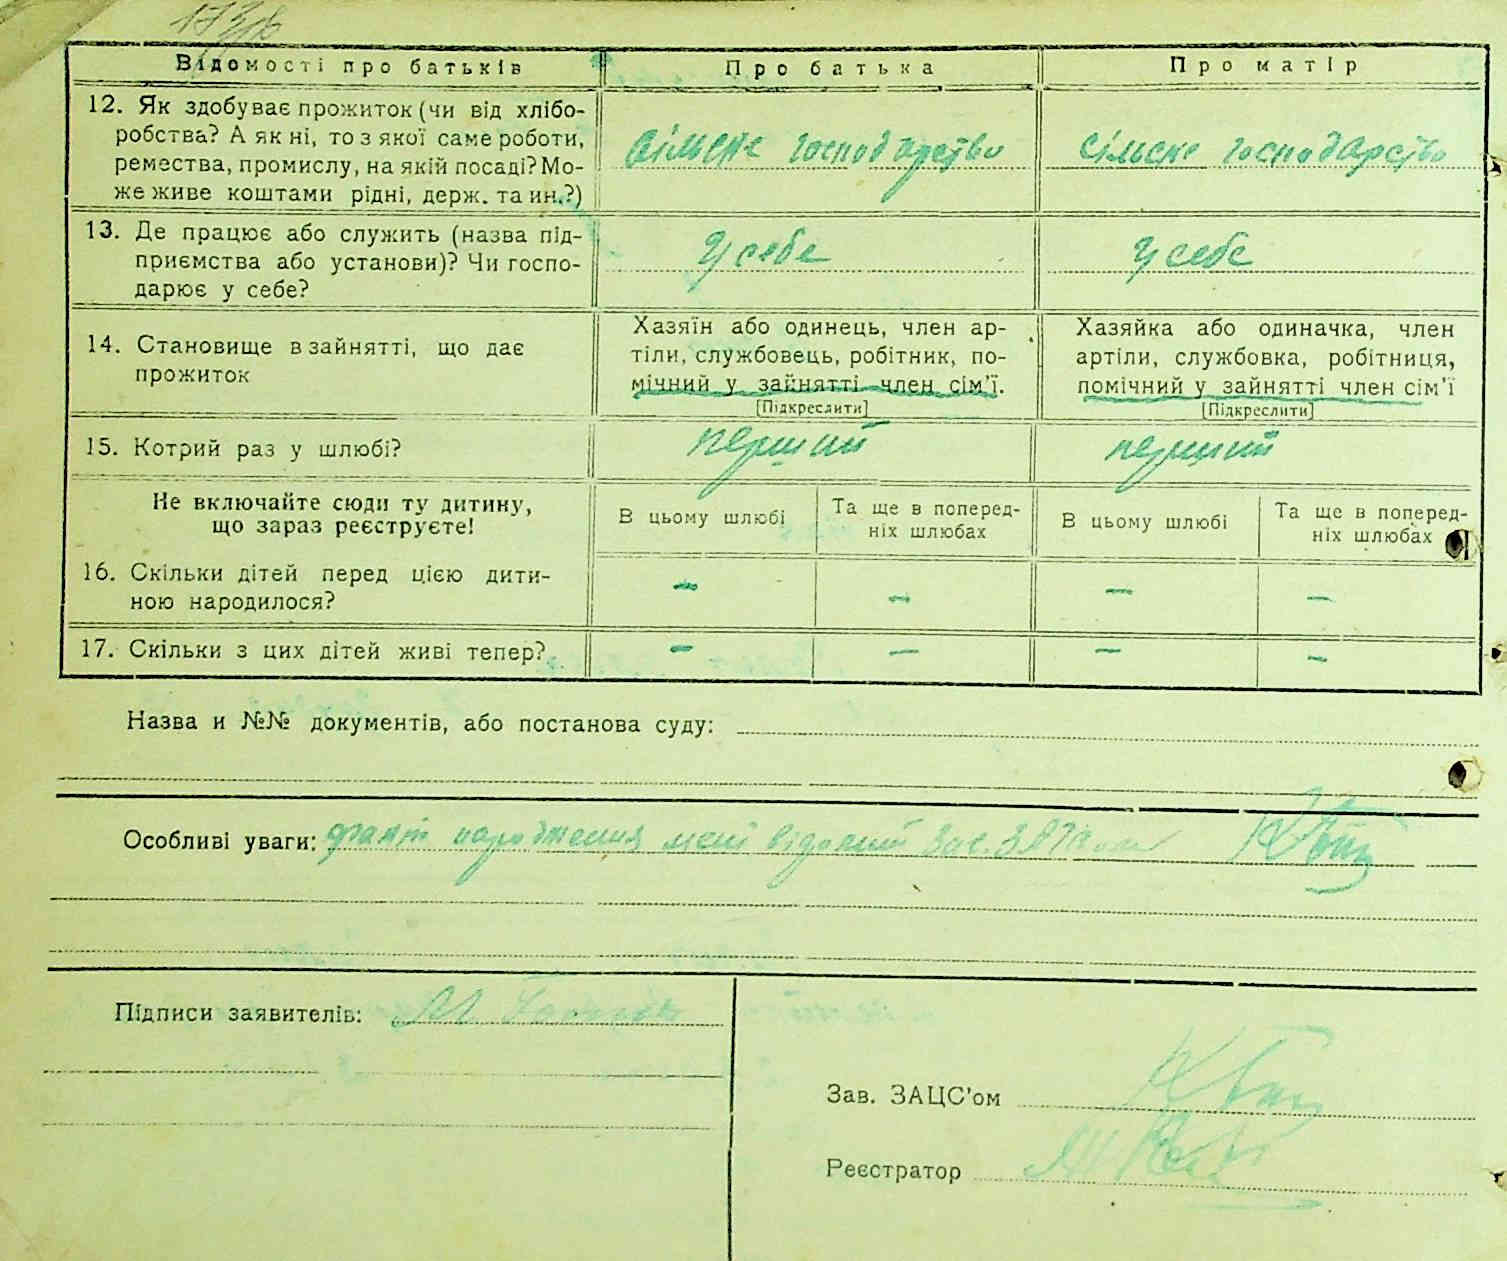 173
Відомості про батьків
Про батька
Про матір
12. Як здобуває прожиток (чи від хлібо-
робства? А як ні, то з якої саме роботи,
ремества, промислу, на якій посаді? Мо-
же живе коштами рідні, держ. та ин.?)
сільске господарство
сільске господарство
13. Де працює або служить (назва під-
приємства або установи)? Чи госпо-
дарює у себе?
у себе
у себе
14. Становище в зайнятті, що дає
прожиток
Хазяїн або одинець, член ар-
тіли, службовець, робітник, по-
мічний у зайнятті член сім'ї.
[Підкреслити]
Хазяйка або одиначка, член
артіли, службовка, робітниця,
помічний у зайнятті член сім'ї
[Підкреслити]
15. Котрий раз у шлюбі?
перший
перший
Не включайте сюди ту дитину,
що зараз реєструєте!
В цьому шлюбі
Та ще в поперед-
ніх шлюбах
В цьому шлюбі
Та ще в поперед-
ніх шлюбах
16. Скільки дітей перед цією дити-
ною народилося?
— — — —
17. Скільки з цих дітей живі тепер?
— — — —
Назва и №№ документів, або постанова суду:
Особливі уваги: факт народження мені відомий
Підписи заявителів: М
Зав. ЗАЦС'ом
Реєстратор